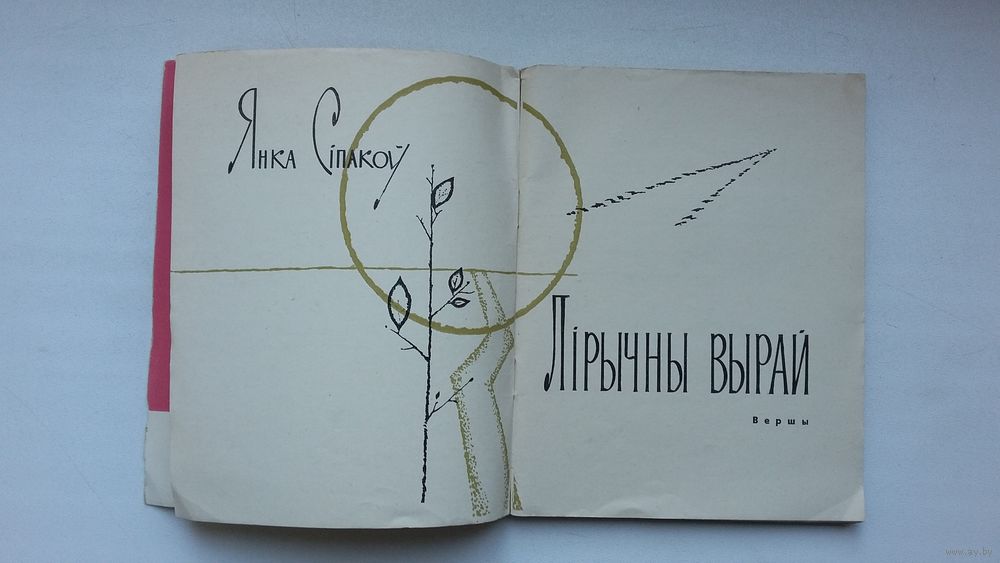 Янка Сіпакоў
Лірычны вырай
Вершы
www.ay.by